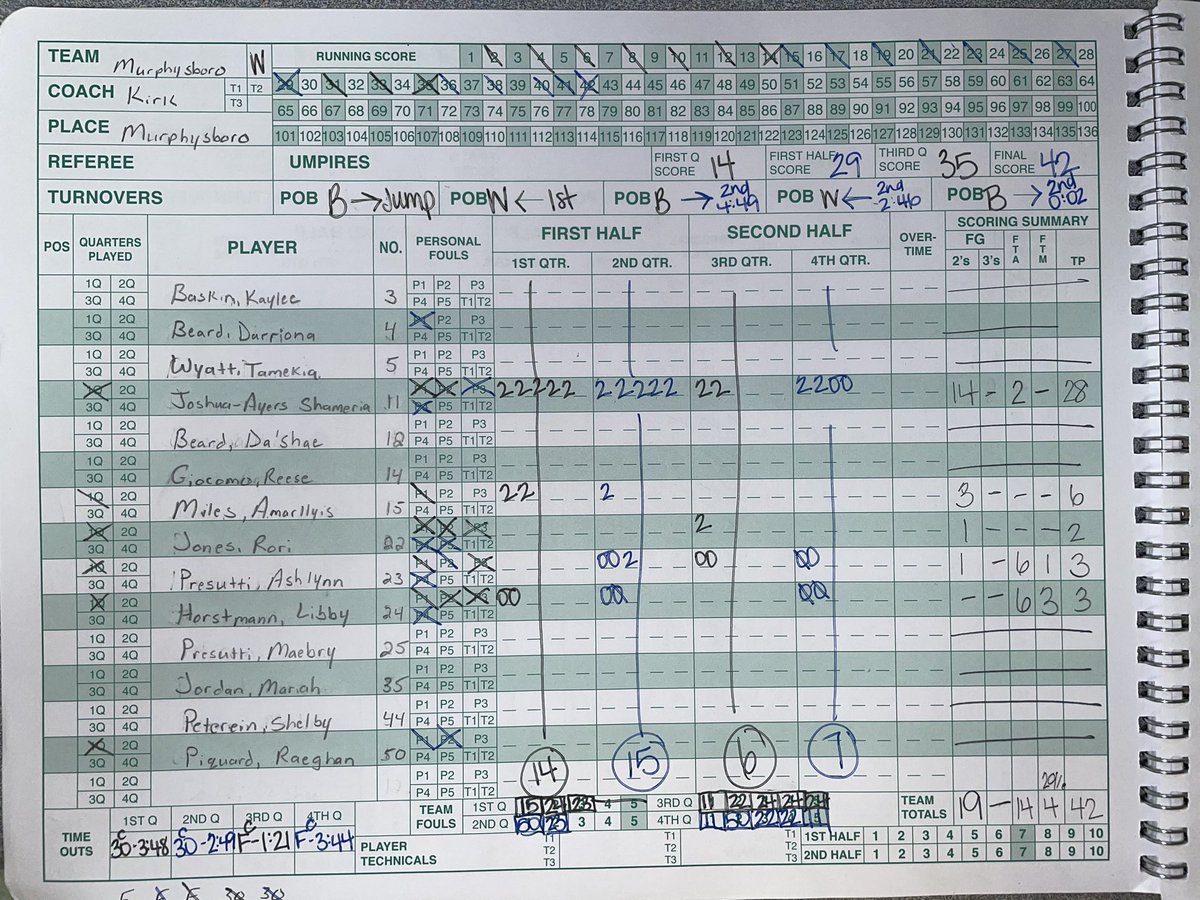 TEAM Murphysboro W RUNNING SCORE 1 2 3 4 5 6 7 8 9 10 11 12 13 14 15 16 17 18 19 20 21 22 23 24 25 26 27 28
COACH Kirk T1 T2 T3 29 30 31 32 33 34 35 36 37 38 39 40 41 42 43 44 45 46 47 48 49 50 51 52 53 54 55 56 57 58 59 60 61 62 63 64
65 66 67 68 69 70 71 72 73 74 75 76 77 78 79 80 81 82 83 84 85 86 87 88 89 90 91 92 93 94 95 96 97 98 99 100
PLACE Murphysboro 101 102 103 104 105 106 107 108 109 110 111 112 113 114 115 116 117 118 119 120 121 122 123 124 125 126 127 128 129 130 131 132 133 134 135 136
REFEREE UMPIRES FIRST Q SCORE 14 FIRST HALF SCORE 29 THIRD Q SCORE 35 FINAL SCORE 42
TURNOVERS POB B → Jump POB W ← 1st POB B → 2nd 4:49 POB W ← 2nd 2:46 POB B → 2nd 0:02
POS QUARTERS PLAYED PLAYER NO. PERSONAL FOULS FIRST HALF SECOND HALF OVER-TIME SCORING SUMMARY
1ST QTR. 2ND QTR. 3RD QTR. 4TH QTR. FG 2's 3's FTA FTM TP
1Q 2Q 3Q 4Q Baskin, Kaylee 3 P1 P2 P3 P4 P5 T1 T2
1Q 2Q 3Q 4Q Beard, Darriona 4 P1 P2 P3 P4 P5 T1 T2
1Q 2Q 3Q 4Q Wyatt, Tamekia 5 P1 P2 P3 P4 P5 T1 T2
1Q 2Q 3Q 4Q Joshua-Ayers Shameria 11 P1 P2 P3 P4 P5 T1 T2 22222 22222 22 2200 14 - 2 - 28
1Q 2Q 3Q 4Q Beard, Da'shae 12 P1 P2 P3 P4 P5 T1 T2
1Q 2Q 3Q 4Q Giocomo, Reese 14 P1 P2 P3 P4 P5 T1 T2
1Q 2Q 3Q 4Q Miles, Amarllyis 15 P1 P2 P3 P4 P5 T1 T2 22 2 3 - - - 6
1Q 2Q 3Q 4Q Jones, Rori 22 P1 P2 P3 P4 P5 T1 T2 2 1 - - - 2
1Q 2Q 3Q 4Q Presutti, Ashlynn 23 P1 P2 P3 P4 P5 T1 T2 002 00 00 1 - 6 1 3
1Q 2Q 3Q 4Q Horstmann, Libby 24 P1 P2 P3 P4 P5 T1 T2 00 00 00 - - 6 3 3
1Q 2Q 3Q 4Q Presutti, Maebry 25 P1 P2 P3 P4 P5 T1 T2
1Q 2Q 3Q 4Q Jordan, Mariah 35 P1 P2 P3 P4 P5 T1 T2
1Q 2Q 3Q 4Q Peterein, Shelby 44 P1 P2 P3 P4 P5 T1 T2
1Q 2Q 3Q 4Q Piquard, Raeghan 50 P1 P2 P3 P4 P5 T1 T2
1Q 2Q 3Q 4Q P1 P2 P3 P4 P5 T1 T2 14 15 6 7
TIME OUTS 1ST Q 2ND Q 3RD Q 4TH Q TEAM FOULS 1ST Q 15 24 23 4 5 3RD Q 11 22 24 24 TEAM TOTALS 19 - 14 4 42
C 30-3:48 C 30-2:49 C F-1:21 C F-3:44 2ND Q 50 3 4 5 4TH Q 11 50
PLAYER TECHNICALS T1 T2 T3 T1 T2 T3 1ST HALF 1 2 3 4 5 6 7 8 9 10
2ND HALF 1 2 3 4 5 6 7 8 9 10